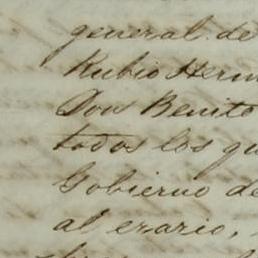 general de
Rubio Herm
Don Benito
todos los qu
Gobierno de
al erario,